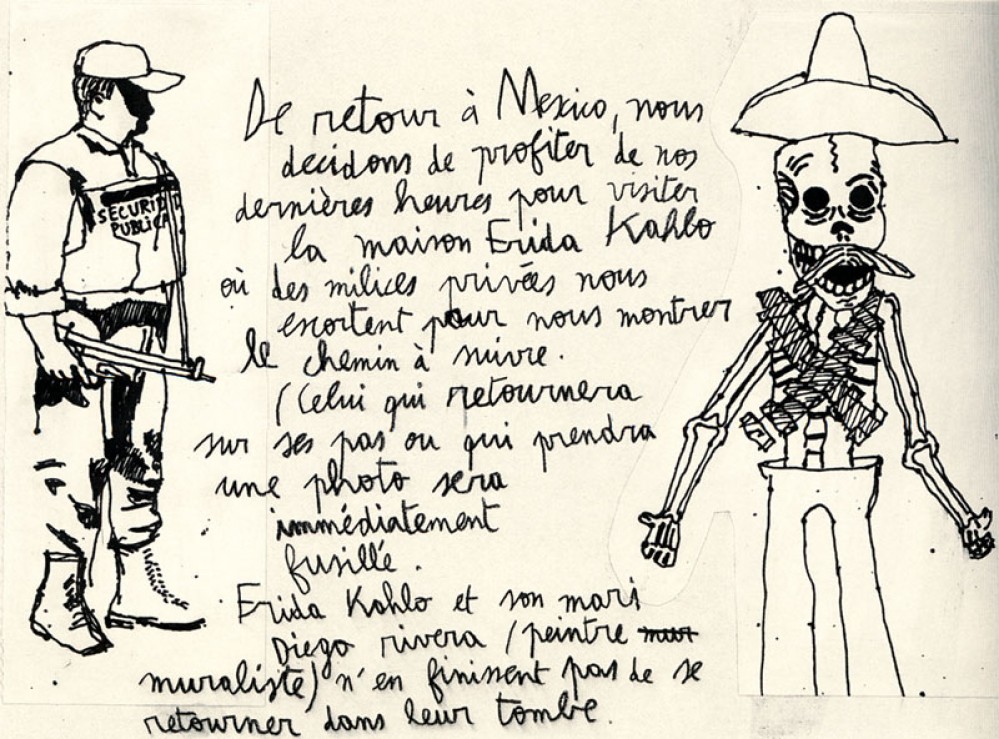 SECURIDAD
PUBLICA
De retour à Mexico, nous
decidons de profiter de nos
dernières heures pour visiter
la maison Frida Kahlo
où des milices privées nous
escortent pour nous montrer
le chemin à suivre.
(Celui qui retournera
sur ses pas ou qui prendra
une photo sera
immédiatement
fusillé.
Frida Kahlo et son mari
Diego rivera (peintre mur
muraliste) n'en finissent pas de se
retourner dans leur tombe.